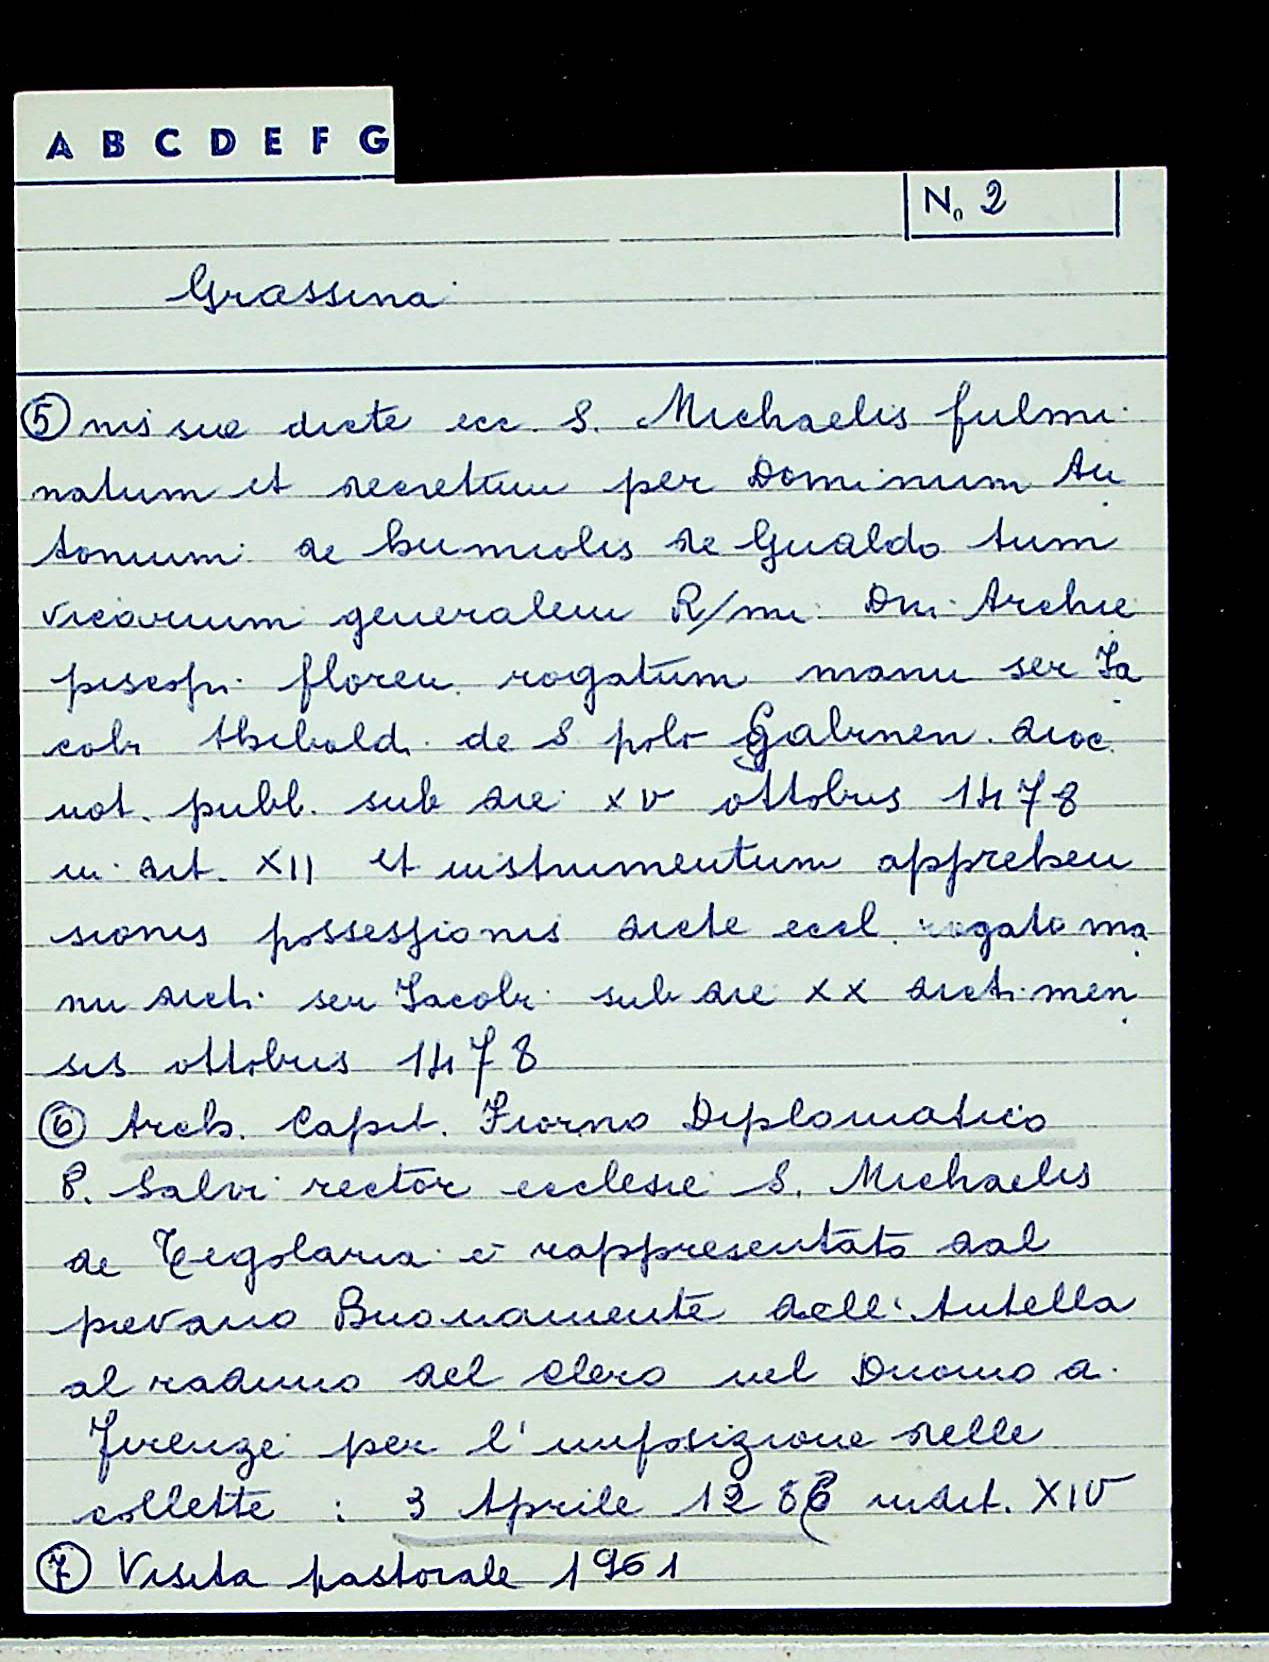 A B C D E F G
N. 2
Grassina
⑤ nis sue dicte ecc. S. Michaelis fulmi
natum et decretum per Dominum An
tonium de de Gualdo tum
vicarium generalem R/mi Dni Archie
piscopi floren. rogatum manu ser Ia
cobi Thebaldi de S polo dioc.
not. pubb. sub die XV ottobris 1478
indit. XII et instrumentum apprehen
sionis possessionis dicte eccl. rogato ma
nu dicti ser Iacobi sub die XX dicti men
sis ottobris 1478
⑥ Arch. Capit. Fiorno Diplomatico
P. Salvi rector ecclesie S. Michaelis
de Tegolaria è rappresentato dal
pievano Buonamente dell'Antella
al raduno del clero nel Duomo a
Firenze per l'imposizione delle
collette : 3 Aprile 1286 indit. XIV
⑦ Visita pastorale 1961